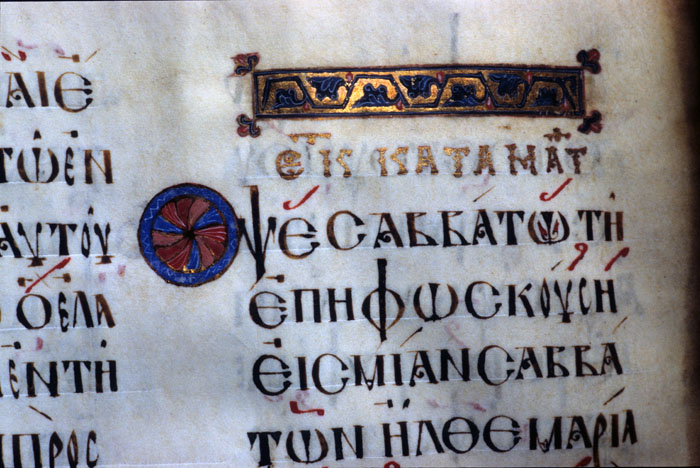 ΑΙΕ
ΤΩΕΝ
ΑΥΤΟΥ
ΘΕΛΑ
ΕΝΤΗ
ΠΡΟϹ
ΕΚ ΚΑΤΑ ΜΑΤ
ΟΨΕ ϹΑΒΒΑΤΩ ΤΗ
ΕΠΗΦΩϹΚΟΥϹΗ
ΕΙϹ ΜΙΑΝ ϹΑΒΒΑ
ΤΩΝ ΗΛΘΕ ΜΑΡΙΑ